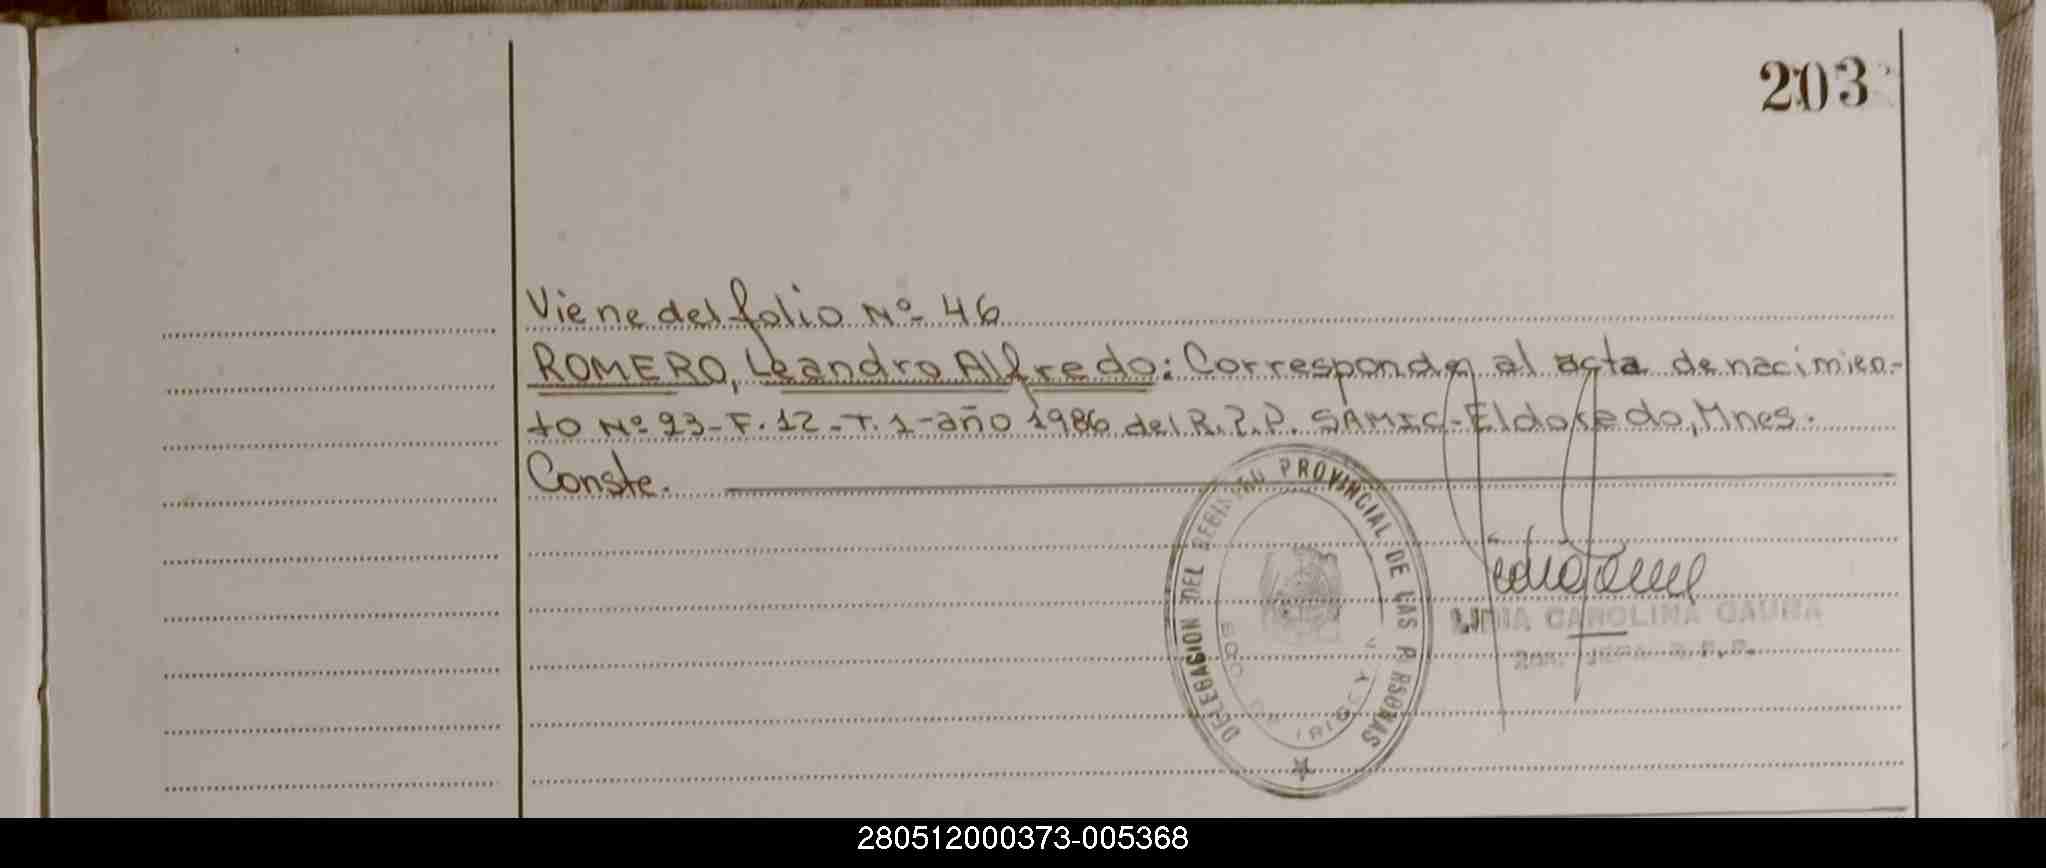 203
Viene del folio Nº 46
ROMERO, Leandro Alfredo: Corresponde al acta de nacimien-
to Nº 23-F.12-T.1-año 1986 del R.P.P. SAMIC-Eldorado, Mnes.
Conste.
DELEGACION DEL REGISTRO PROVINCIAL DE LAS PERSONAS
LIDIA CAROLINA GAUNA
R.P.P.
280512000373-005368